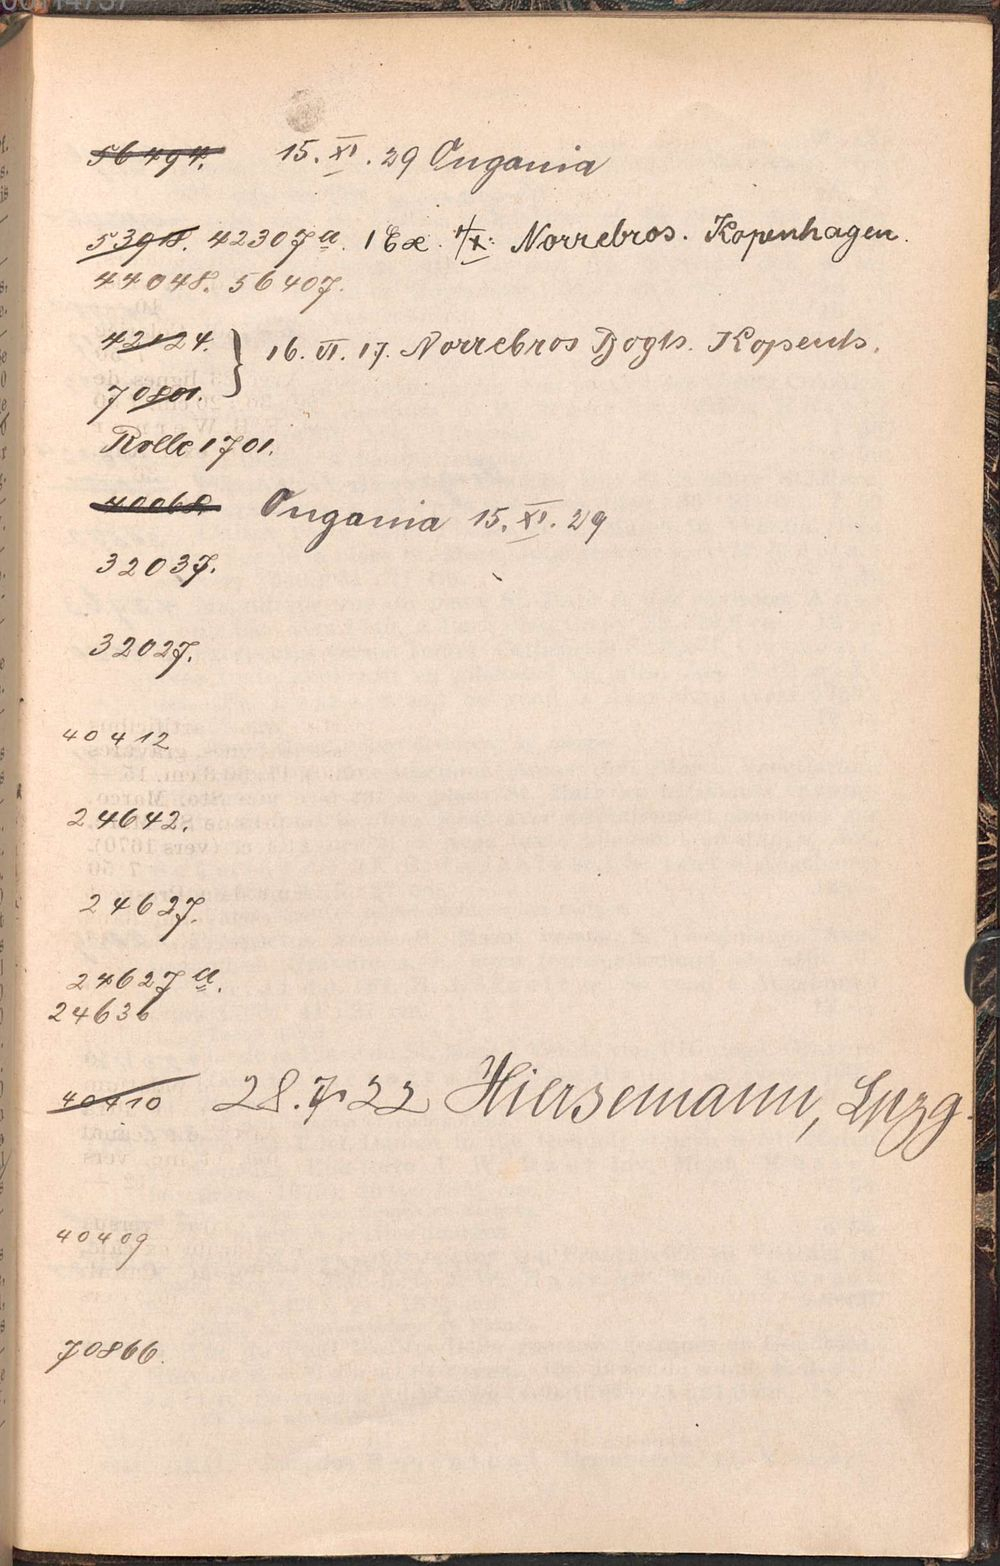 56494. 15. XI. 29 Ongania
53918. 42307a. 1 Ex. 4/X. Norrebros. Kopenhagen.
44048. 56407.
42124. } 16. VI. 17. Norrebros Kopenh.
70801.
Rolle 1701.
40068. Ongania 15. XI. 29
32037.
32027.
40412
24642.
24627.
24627a.
24636
40410 28.7.22 Hiersemann, Lpzg.
40409
70866.